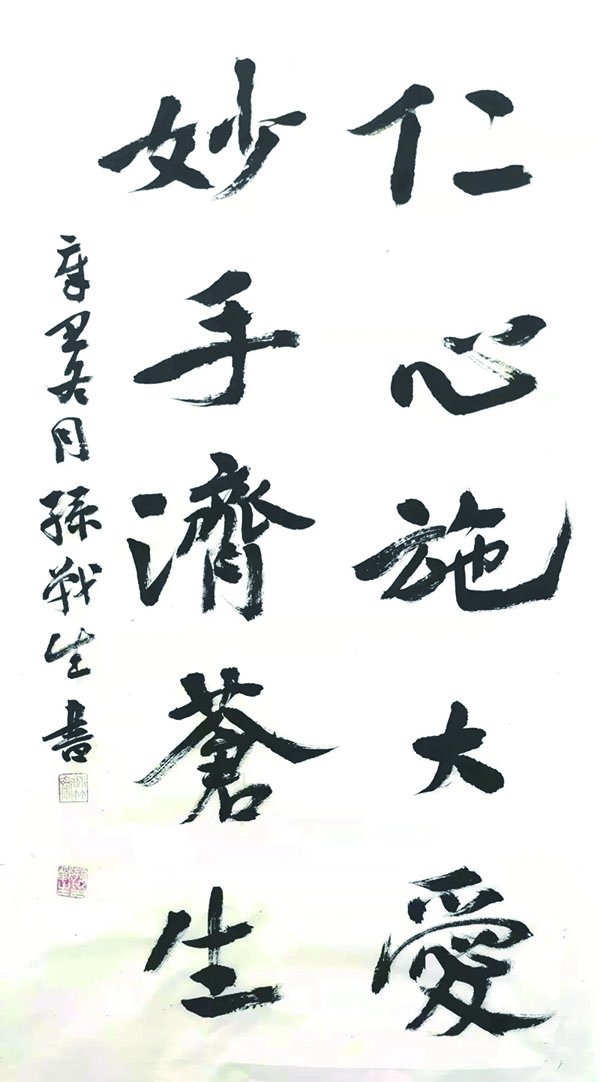 仁心施大愛
妙手濟蒼生
辛丑冬月孫戰生書